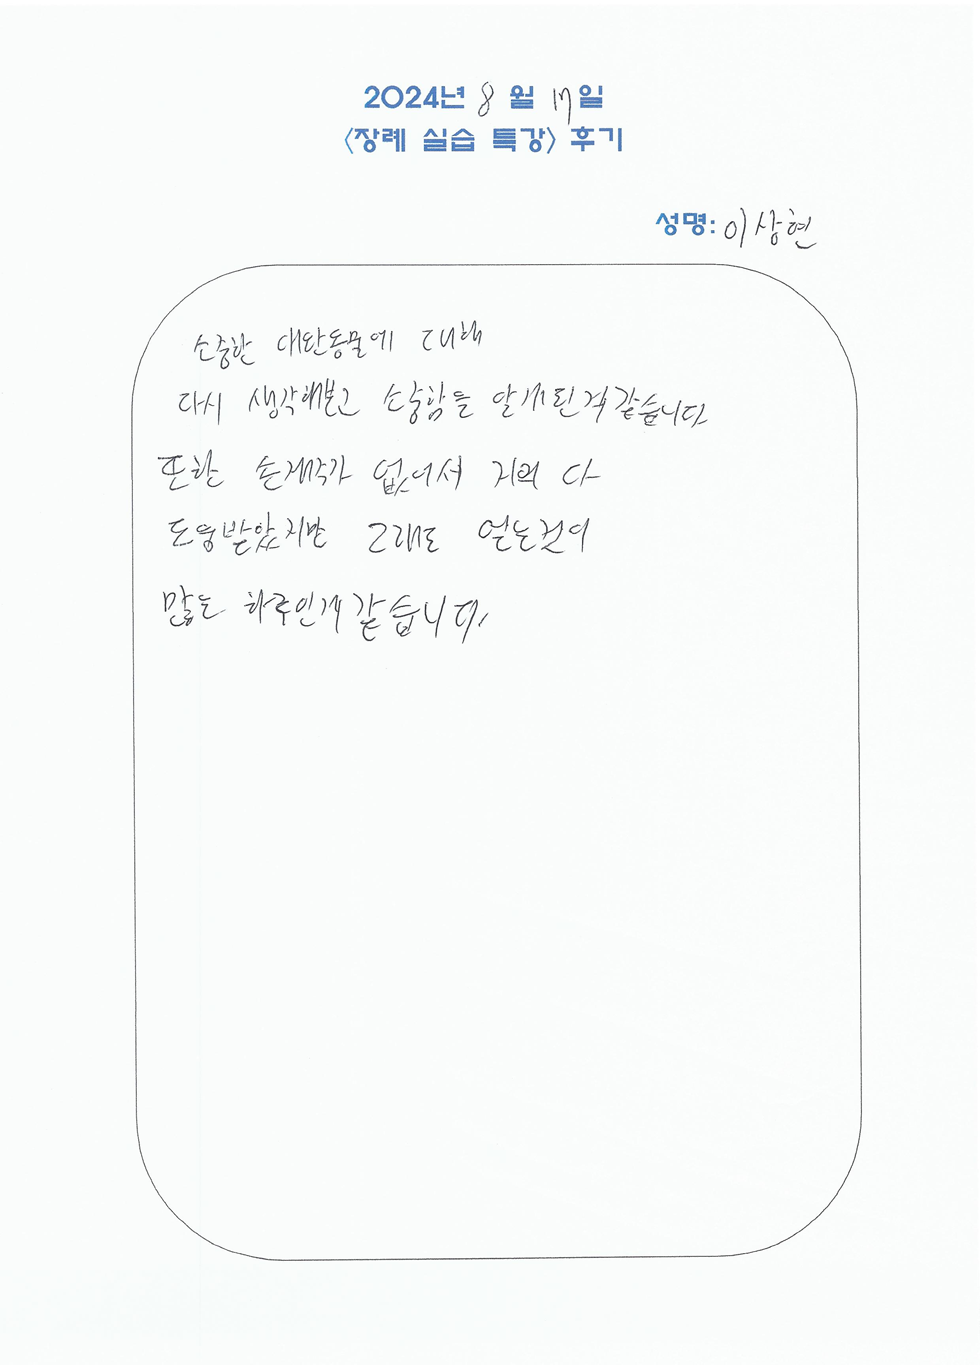 2024년 8월 17일
<장례 실습 특강> 후기
성명: 이상현
소중한 대반동물에 대해
다시 생각해보고 소중함을 알게된게 같습니다
또한 손재주가 없어서 거의 다
도움받았지만 그래도 얻는것이
많은 하루인게 같습니다.